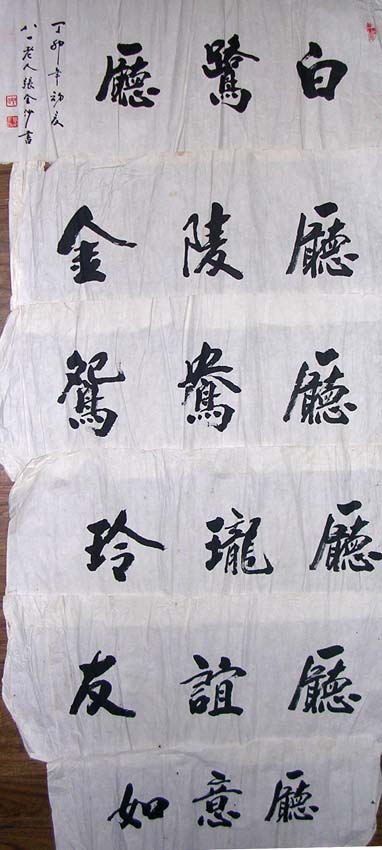 白鷺廳
丁卯年初夏
八一老人張書
金陵廳
鴛鴦廳
玲瓏廳
友誼廳
如意廳